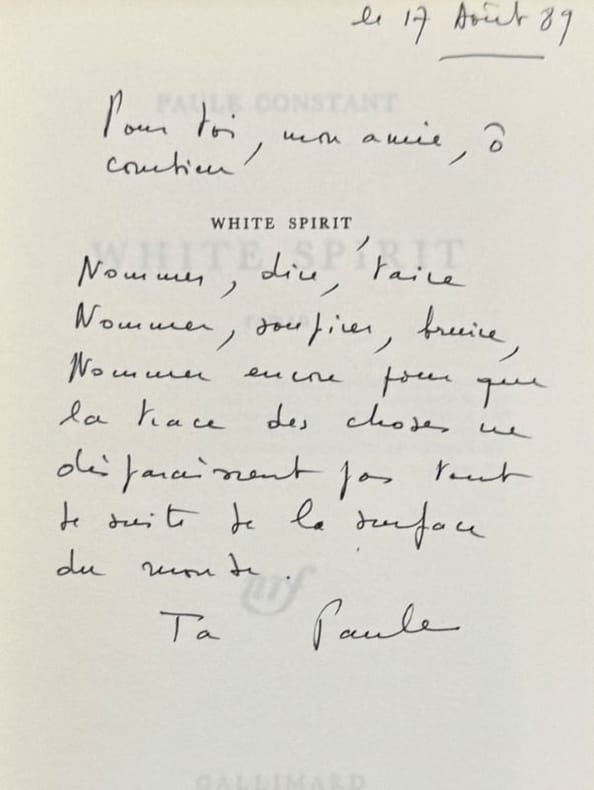 le 17 Août 89
Pour toi, mon amie, ô
combien
WHITE SPIRIT,
Nommer, dire, taire
Nommer, soupirer, bruire,
Nommer encore pour que
la trace des choses ne
disparaissent pas tout
de suite de la surface
du monde.
Ta Paule
PAULE CONSTANT
WHITE SPIRIT
nrf
GALLIMARD